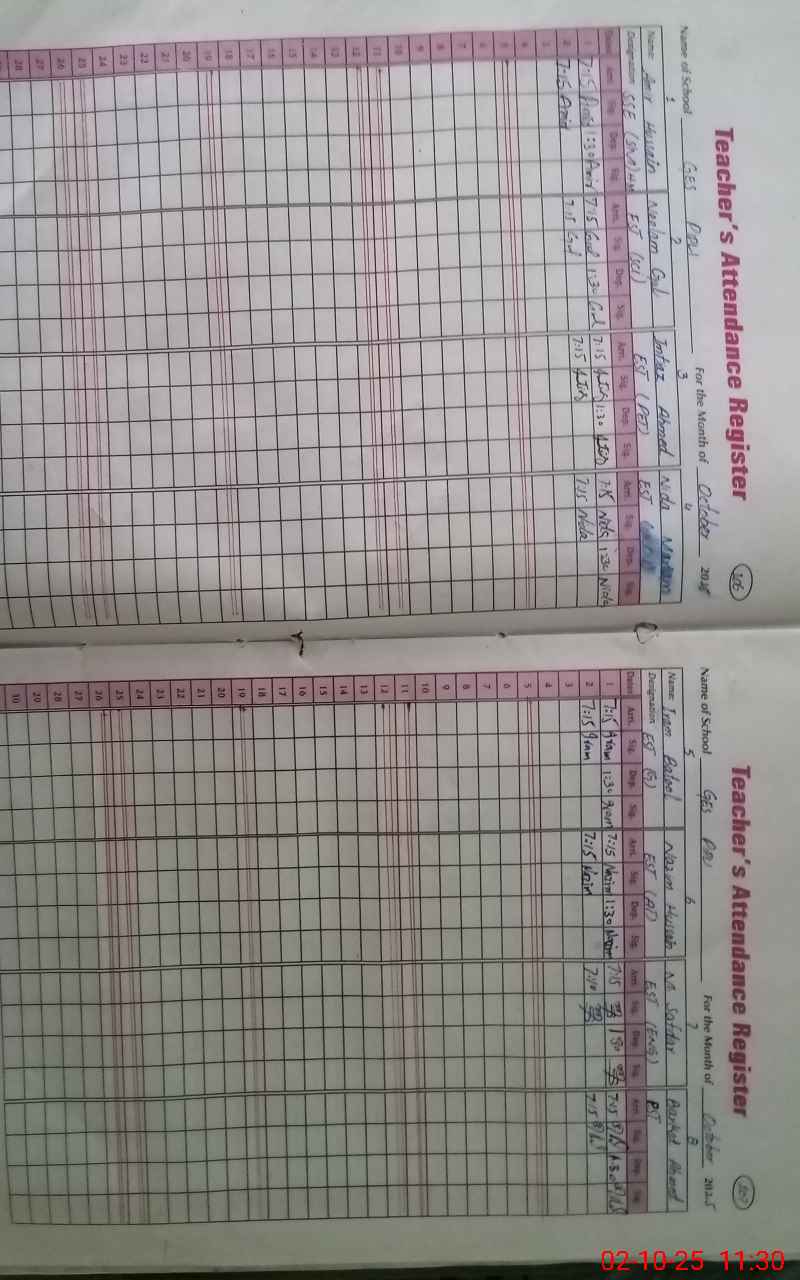 Teacher's Attendance Register
106
Name of School GES For the Month of October 20
1 2 3 4
Name: Amir Hussain Neelam Gul Imtiaz Ahmed Nida
Designation SSE EST (SCI) EST (PET) EST
Dates Arr. Sig. Dep. Sig. Arr. Sig. Dep. Sig. Arr. Sig. Dep. Sig. Arr. Sig. Dep. Sig.
1 7:15 Amir 1:30 Amir 7:15 Gul 1:30 Gul 7:15 1:30 7:15 Nida 1:30 Nida
2 7:15 Amir 7:15 Gul 7:15 7:15 Nida
3
4
5
6
7
8
9
10
11
12
13
14
15
16
17
18
19
20
21
22
23
24
25
26
27
28
Teacher's Attendance Register
107
Name of School GES For the Month of October 2025
5 6 7 8
Name: Iram Batool Nazim Hussain M. Safdar Barkat Ahmed
Designation EST (G) EST (AT) EST (ENG) PST
Dates Arr. Sig. Dep. Sig. Arr. Sig. Dep. Sig. Arr. Sig. Dep. Sig. Arr. Sig. Dep. Sig.
1 7:15 Iram 1:30 Iram 7:15 Nazim 1:30 Nazim 7:15 1:30 7:15 1:30
2 7:15 Iram 7:15 Nazim 7:15
3
4
5
6
7
8
9
10
11
12
13
14
15
16
17
18
19
20
21
22
23
24
25
26
27
28
29
30
02-10-25 11:30